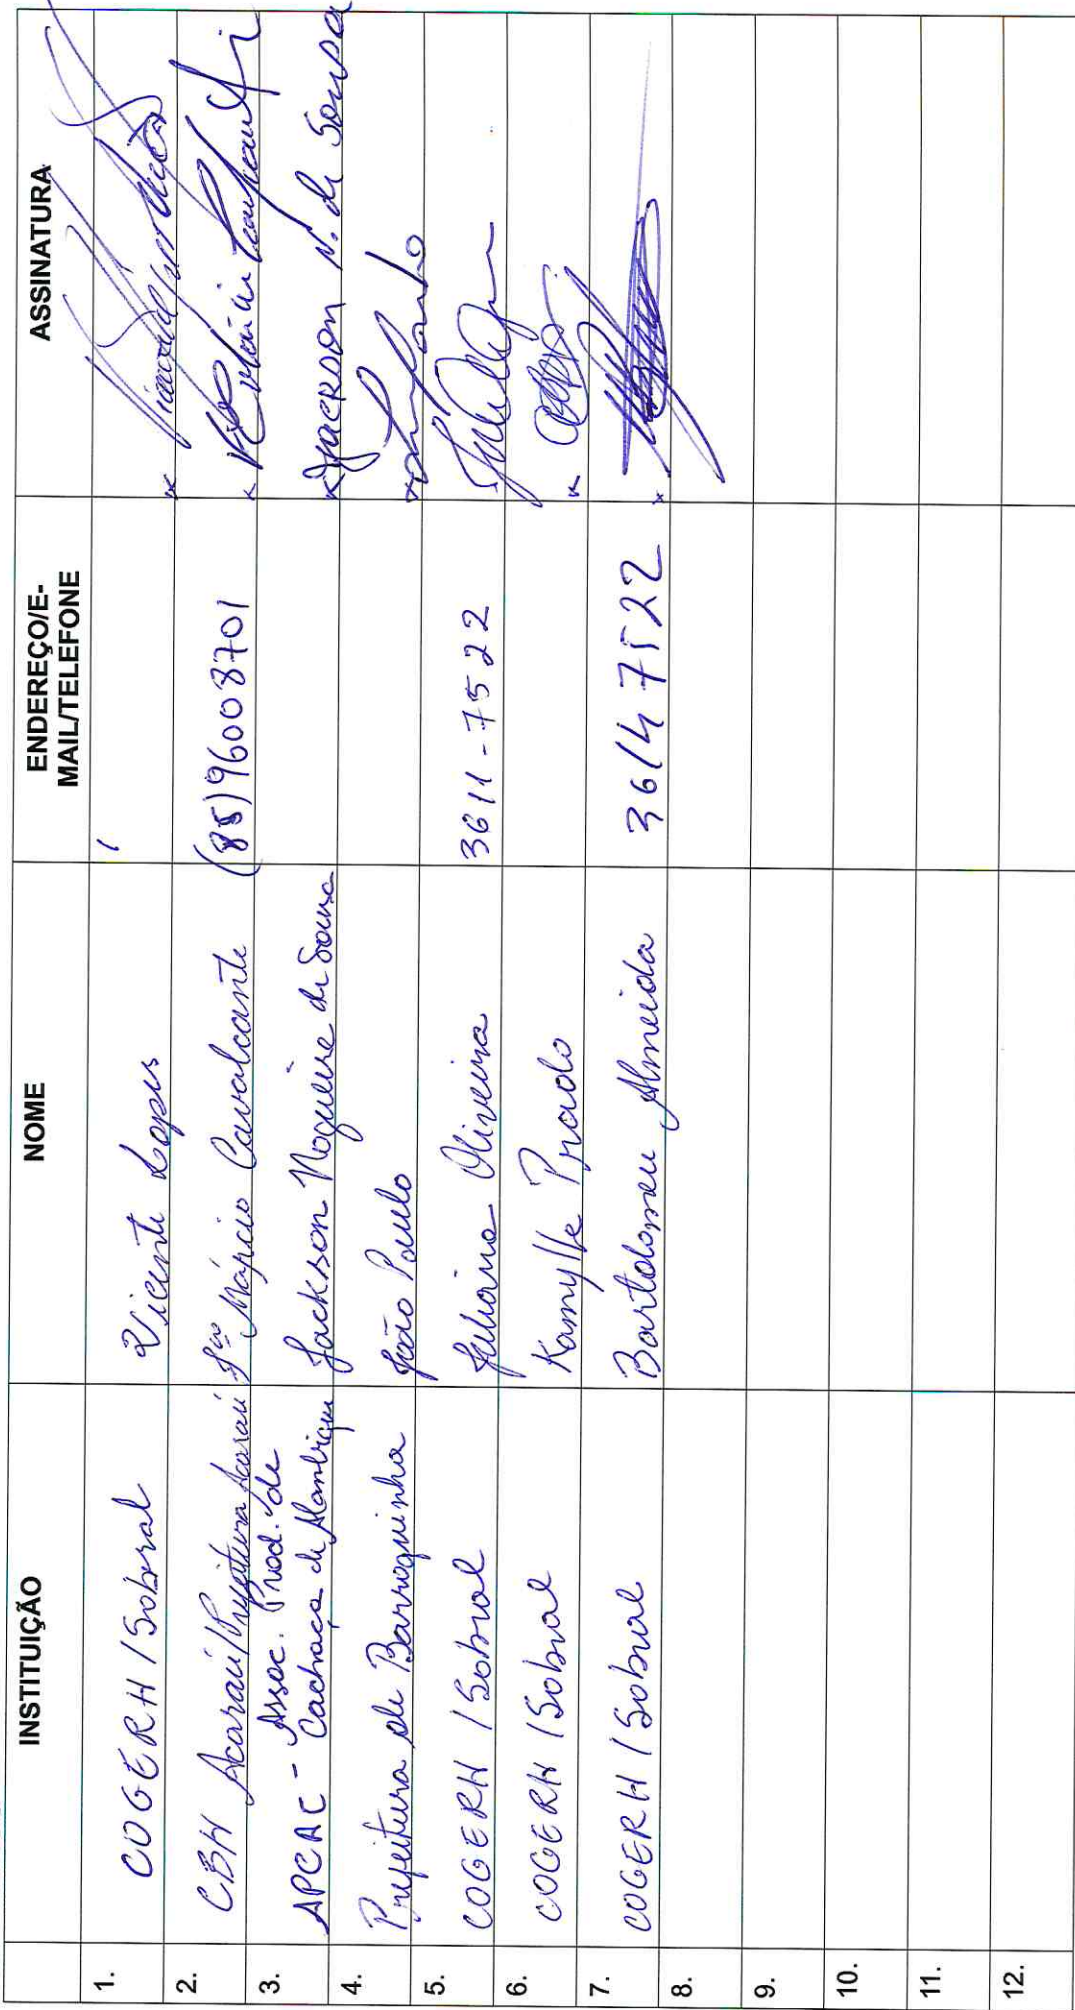 INSTITUIÇÃO NOME ENDEREÇO/E-MAIL/TELEFONE ASSINATURA
1. COGERH / Sobral Vicente Lopes
2. CBH Acaraú/Prefeitura Acaraú Fco Márcio Cavalcante (88)96008701
3. APCAC - Assoc. Prod. de Cachaça de Alambique Jackson Nogueira de Sousa Jackson N. de Sousa
4. Prefeitura de Barroquinha João Paulo
5. COGERH / Sobral Juliana Oliveira 3611-7522
6. COGERH / Sobral Kamylle Prado
7. COGERH / Sobral Bartolomeu Almeida 3614 7522
8.
9.
10.
11.
12.